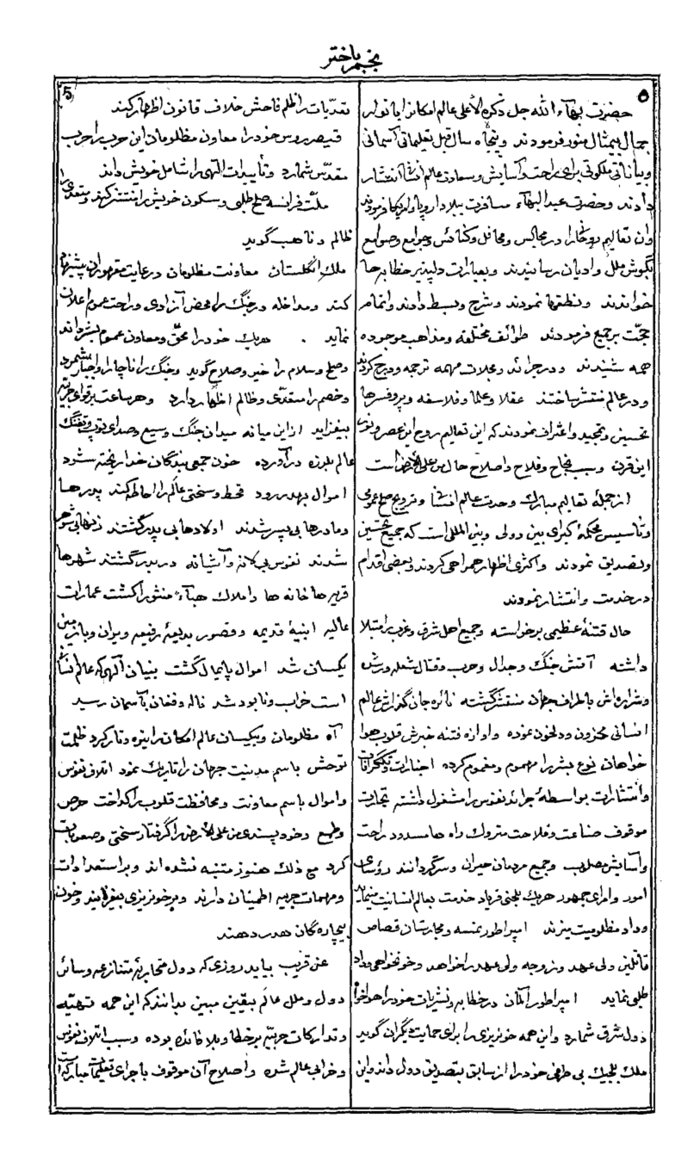 نجم باختر
۵
حضرت بهآء الله جل ذکره الأعلی عالم امکانرا بانوار
جمال بیمثال منور فرمودند و پنجاه سال قبل تعلیماتی آسمانی
و بیاناتی ملکوتی برای راحت و آسایش و سعادت عالم انشآ انتشار
دادند و حضرت عبد البهآء مسافرت ببلاد اروپا و امریکا فرمودند
و ان تعالیم روحانی را در مجالس و محافل و کنائس و جوامع و صوامع
بگوش ملل و ادیان رسانیدند و بعبارات دلپذیر خطابه ها
خواندند و نطقها نمودند و شرح و بسط دادند و اتمام
حجت بر جمیع فرمودند طوائف مختلفه و مذاهب موجوده
همه شنیدند و در جرائد و مجلات مهمه ترجمه و درج کردند
و در عالم منتشر ساختند عقلا و علما و فلاسفه و پروفسرها
تحسین و تمجید و اعتراف نمودند که این تعالیم روح این عصر و نور
این قرن و سبب نجاح و فلاح و اصلاح حال من علی الأرض است
از جملهٔ تعالیم مبارک وحدت عالم انشآ و ترویج صلح عمومی
و تأسیس محکمهٔ کبرای بین دولی و بین المللی است که جمیع تحسین
و تصدیق نمودند و اکثری اظهار همراهی کردند و بعضی اقدام
در خدمت و انتشار نمودند
حال فتنهٔ عظیمی برخواسته و جمیع اهل شرق و غرب را مبتلا
داشته آتش جنگ و جدال و حرب و قتال شعله ورش
و شراره اش باطراف جهان منتشر گشته نائره جان گدازش عالم
انسانی محزون و دلخون نموده و اوازه فتنه خبرش قلوب هوا
خواهان نوع بشر را مهموم و مغموم کرده اخبارات و تلگرافات
و انتشارات بواسطهٔ جرائد نفوس را مشغول داشته تجارت
موقوف صناعت و فلاحت متروک راه ها مسدود راحت
و آسایش مصلوب و جمیع مردمان حیران و سرگردانند رؤسای
امور و امرای جمهور هر یک بلحنی فریاد خدمت بعالم انسانیت مینمایند
و داد مظلومیت میزند امپراطور نمسه و مجارستان قصاص
قاتلین ولی عهد و زوجه ولی عهد را خواهد و خونخواهی و داد
طلبی نماید امپراطور آلمان در خطابه و نشریات خود را هوا خواه
دول شرق شمارد و این همه خونریزی را برای حمایت دیگران گوید
ملک بلجیک بی طرفی خود را از سابق بتصدیق دول داند و این
5
تعدّیات را ظلم فاحش خلاف قانون اظهار کند
قیصر روس خود را معاون مظلومان این حرب را حرب
مقدّس شمارد و تأییدات الهی را شامل خویش داند
ملّت فرانسه صلح طلبی و سکون خویش را منتشر کند و متعدی را
ظالم و ناهب گوید
ملک انگلستان معاونت مظلومان و رعایت مقهوران پیشنهاد
کند و مداخله در جنگ را محض آزادی و راحت عموم اعلان
نماید . هر یک خود را محقّ و معاون عموم بشر داند
و صلح و سلام را خیر و صلاح گوید و جنگ را ناچار و اجبار شمرد
و خصم را متعدّی و ظالم اظهار دارد و هر ساعت بر قوای حربیه
بیفزاید از این میانه میدان جنگ وسیع و صدای توپ و تفنگ
عالم بلرزه در آورده خون جمعی بندگان خدا ریخته شود
اموال بهدر رود قحط و سختی عالم را احاطه کند پدرها
و مادرها بی پسر شدند اولادها بی پدر گشتند زنها بی شوهر
شدند نفوس بی لانه و آشیانه در بدر گشتند شهرها
قریه ها خانه ها و املاک هبآءً منثورا گشت عمارات
عالیه ابنیهٔ قدیمه و قصور بدیعهٔ رفیعه ویران و با زمین
یکسان شد اموال پایمال گشت بنیان آلهی که عالم انشآ
است خراب و نابود شد ناله و فغان بآسمان رسید
آه مظلومان و بیکسان عالم امکان را تیره و تار کرد ظلمت
توحش باسم مدنیت جهان را تاریک نمود اتلاف نفوس
و اموال باسم معاونت و محافظت قلوب را گداخت حرص
و طمع و خود پسندی من علی الأرض را گرفتار سختی و صعوبات
کرد مع ذلک هنوز متنبه نشده اند و بر استعدادات
و مهمات حربیه اطمینان دارند و بر خونریزی بیفزایند و خون
بیچاره گان هدر دهند
عن قریب بیاید روزی که دول متحاربهٔ متنازعه و سائر
دول و ملل عالم بیقین مبین بدانند که این همه تهیّه
و تدارکات حربیّه بر خطا و بلا فائده بوده و سبب اتلاف نفوس
و خرابی عالم شده و اصلاح آن موقوف باجرای تعلیمات مبارک است